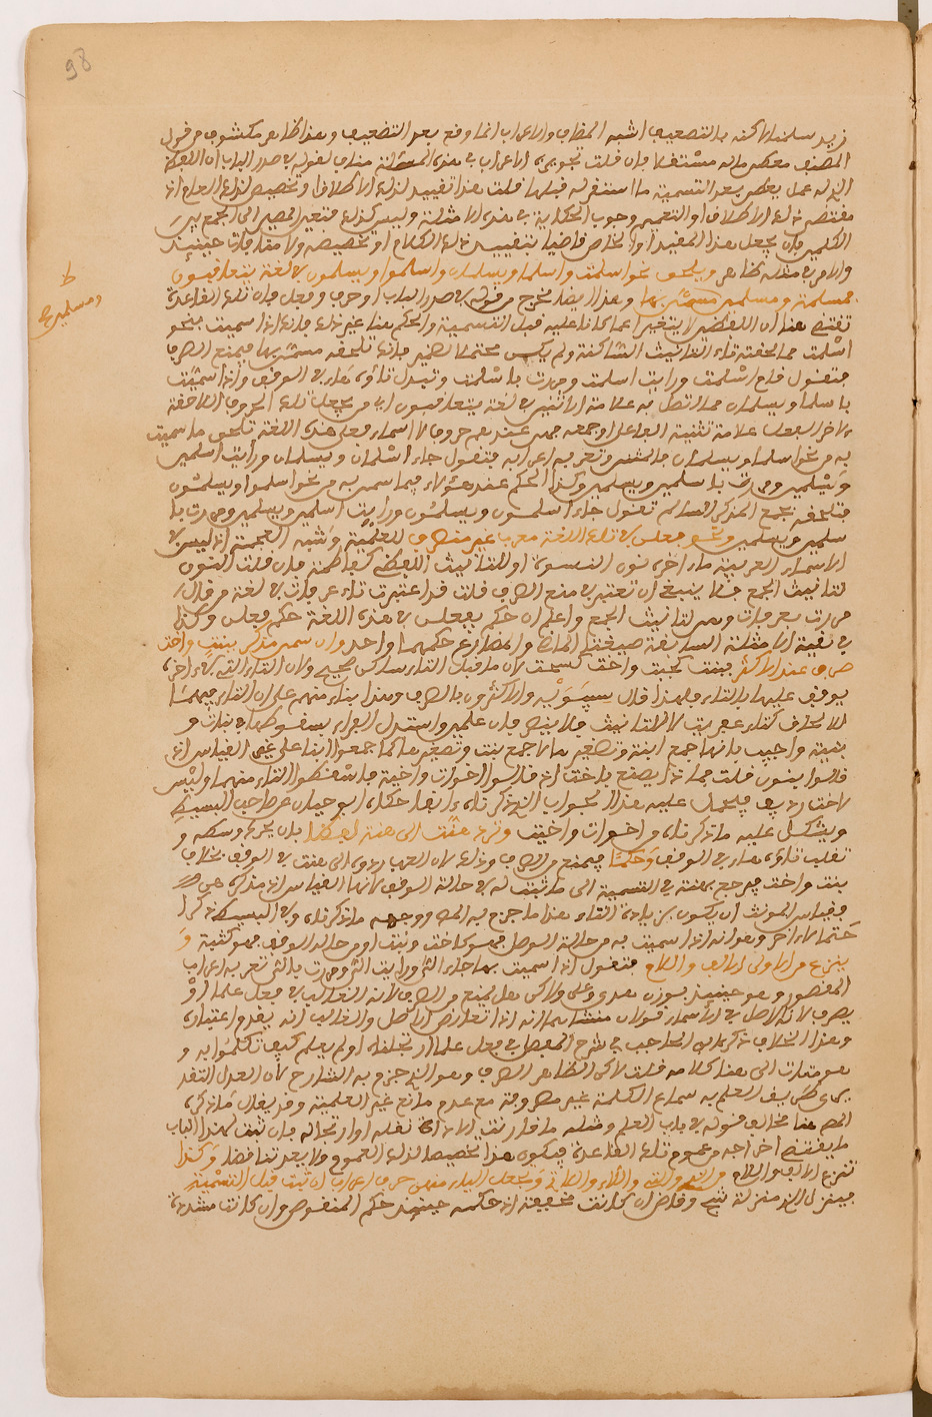 98
زيد سلمنا لاكنه بالتصعيب اشبه المضاب والاعراب انما وقع بعد التضعيف وهذا ظاهر مكشوف من قول
المصنف فان قلت الاعراب في هذه المسئلة مناف لقوله في صدر الباب ان اللفظة
الذي له عمل بعد التسمية ما استقر له قبلها قلت هذا تقييد لذلك الاطلاق او تخصيص لذلك العام اذ
مقتضى ذلك الاطلاق او التعميم وجوب الحكاية في هذه الامثلة وليس كذلك فتعين المصير الى الجمع بين
الكلمين بان يجعل هذا المقيد او الخاص قاضيا بتقييد ذلك الكلام او تخصيصه ولا حينئذ
والامر في مثله ظاهر ويلحق نحو اسلمت واسلما ويسلمان واسلموا ويسلمون في لغة يتعاقبون
ومسلمين صح
مسلمة ومسلمين مسمى بها وهذا ايضا مخرج من قوله في صدر الباب او حرف وفعل فان تلك القاعدة
تقتضي هنا ان اللفظ لا يتغير عما كان عليه قبل التسمية والحكم هنا غير ذلك فانك اذا سميت بنحو
اسلمت مما لحقته تاء التانيث الساكنة ولم يكن محتملا لضمير فانك تلحقه مسمى بها فيمنع الصرف
فتقول قام اسلمت ورايت اسلمت ومررت باسلمت وتبدل تاؤه هاء في الوقف واذا سميت
باسلما ويسلمان مما اتصل به علامة الاثنين في لغة يتعاقبون اي من يجعل تلك الحروف اللاحقة
لاخر الفعل علامة تثنية الفاعل او جمعه فهي عندهم حروف لا اسماء فعلى هذه اللغة تلحق ما سميت
به من نحو اسلما ويسلمان بالمثنى وتعربه اعرابه فتقول جاء اسلمان ويسلمان ورايت اسلمين
ويسلمين ومررت باسلمين ويسلمين وكذا الحكم عند هؤلاء فيما سمي به من نحو اسلموا ويسلمون
فتلحقه بجمع المذكر السالم تقول جاء اسلمون ويسلمون ورايت اسلمين ويسلمين ومررت با
سلمين ويسلمين ونحو فعلن في تلك اللغة معرب غير منصرف للعلمية وشبه العجمة اذ ليس في
الاسماء العربية ما اخره نون النسوة او للتانيث اللفظي كفاطمة فان قلت النون
لتانيث الجمع فلا ينبغي ان تعتبر في منع الصرف قلت قد اعتبرت تاء عرفات في لغة من قال
مررت بعرفات وهي لتانيث الجمع واعلم ان حكم يفعلن في هذه اللغة حكم فعلن وكذا
في بقية الامثلة السابقة صيغتا الماضي والمضارع حكمهما واحد وان سمي مذكر ببنت واخت
صرف عند الاكثر فبنت كجبت واخت كسحت لان ما قبل التاء ساكن صحيح ولان التاء التي في اخره
يوقف عليها بالتاء فلهذا قال سيبويه والاكثرون بالصرف وهذا بناء منهم على ان التاء فيهما
للالحاق كتاء عفريت لا للتانيث فلا يضر فان علمية واستدل الفراء بسقوطها في بنات و
بنية واجيب بانها جمع ابنة وتصغيرها لا جمع بنت وتصغيرها كما جمعوا ابنا على غير القياس اذ
قالوا بنون قلت فماذا يصنع باخت اذ قالوا اخوات واخية فاسقطوا التاء منهما وليس
لاخت رديف فيحمل عليه هذا الجواب الذي ذكرناه انفا حكاه ابوحيان عن صاحب البسيط
ويشكل عليه ما ذكرناه واخوات واخيت وترد هنت الى هنة لفظا بان يحرك وسطه و
تقلب تاؤه هاء في الوقف وحكما فيمنع من الصرف وذلك لان العرب ردوه الى هنت في الوقف بخلاف
بنت واخت فيرجع بهنة في التسمية الى ما يثبت له في حالة الوقف لانها القياس اذ مذكره هن
فقياس المؤنث ان يكون بزيادة التاء هذا ما جزم به المص ووجهه ما ذكرناه وفي البسيط ذكر
حتما لا اخر وهو انه اذا سميت به من حالة الوصل فهو كاخت وبنت او من حالة الوقف فهو كثبة و
ينزع من الاولى الالف واللام فتقول اذا سميت بها جاء الى ورايت الى ومررت بالى تعربه اعراب
المقصور وهو حينئذ بوزن هدى وعلى ولاكن هل يمنع من الصرف لان الغالب في فعل علما او
يصرف لانه الاصل في الاسماء قولان منشاهما انه اذا تعارض الاصل والغالب انه يقدم اعتباره
وهذا الخلاف ذكره ابن الحاجب في شرح المفصل في فعل علما ارتجلناه او لم يعلم كيف تكلموا به و
هو متات الى هنا كلامه قلت لاكن الظاهر الصرف وهو الذي جزم به الشارح لان العدل التقد
يري طريق العلم به سماع الكلمة غير مصروفة مع عدم مانع غير العلمية وقد يقال ما ذكره
المص هنا مخالف قوله في باب العلم ومثله ما قارنت الاداة نقله او ارتجاله فان ثبت لهذا الباب
ما يقتضي اخراجه من عموم تلك القاعدة فيكون هذا تخصيصا لذلك العموم ولا يعد تناقضا وكذا
تنزع الالف واللام من الذي والتي واللاء واللاتي وتجعل الياء منهن حرف اعراب ان ثبت قبل التسمية
فينزل الذي منزلة شج وقاض ان كانت مخففة اذ حكمه حينئذ حكم المنقوص وان كانت مشددة